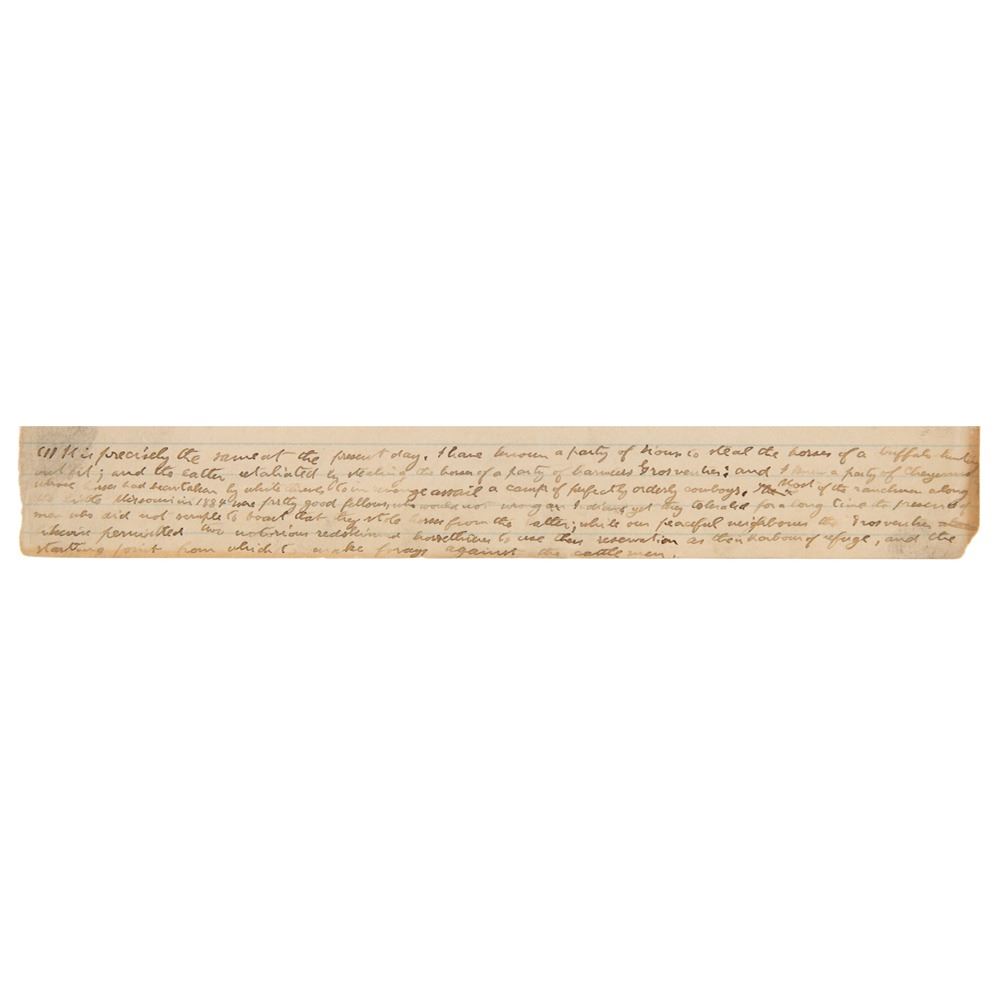 (1) It is precisely the same at the present day. I have known a party of Sioux to steal the horses of a buffalo hunting
outfit; and the latter retaliated by stealing the horses of a party of harmless Grosventres; and I knew a party of Cheyennes
whose horses had been taken by white thieves to in revenge assail a camp of perfectly orderly cowboys. Most of the ranchmen along
the Little Missouri in 1884 were pretty good fellows, who would not wrong an Indian, yet they tolerated for a long time the presence of
men who did not scruple to boast that they stole horses from the latter; while our peaceful neighbours the Grosventres
likewise permitted two notorious redskinned horsethieves to use their reservation as their harbour of refuge, and the
starting point from which to make forays against the cattlemen.